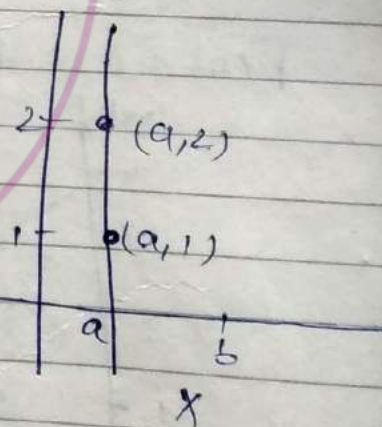 2 (a,2)
1 (a,1)
a b
X